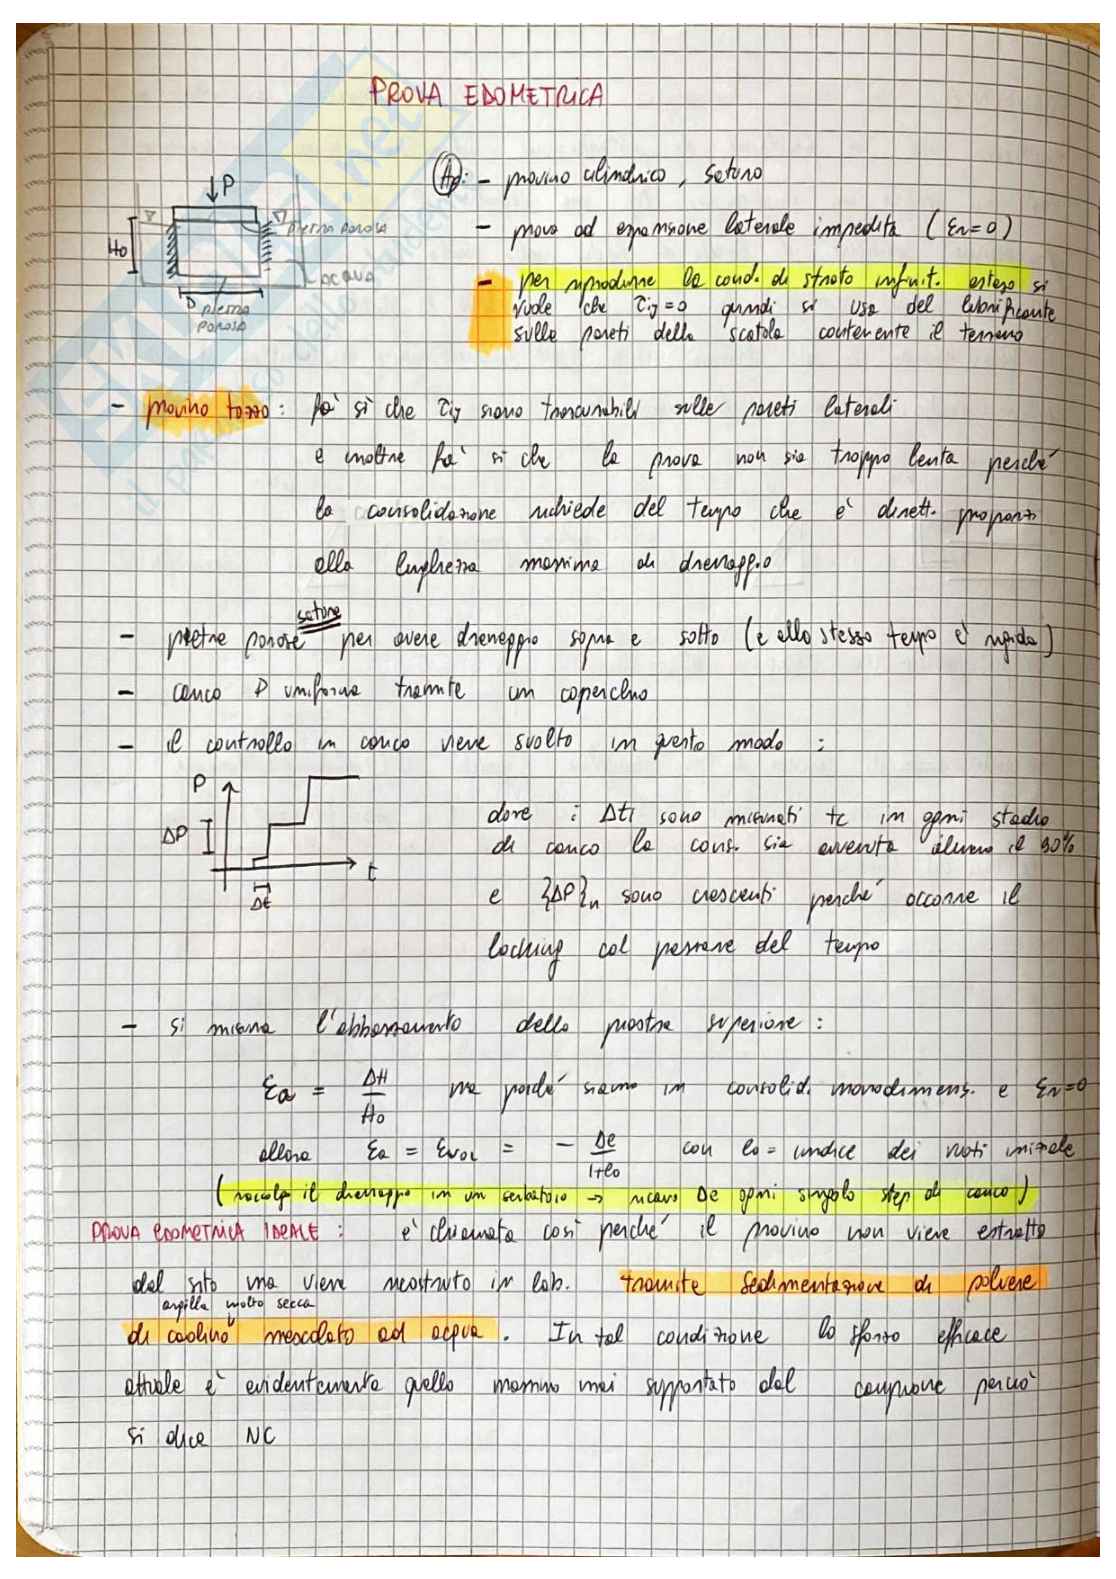 PROVA EDOMETRICA
P
Hp: - provino cilindrico, saturo
- prova ad espansione laterale impedita (εr=0)
pietra porosa
H0
acqua
D
pietra
porosa
- per riprodurre la cond. di strato infinit. esteso si
vuole che τij=0 quindi si usa del lubrificante
sulle pareti della scatola contenente il terreno
- provino tozzo: fa' sì che τij siano trascurabili sulle pareti laterali
e inoltre fa' sì che la prova non sia troppo lenta perché
la consolidazione richiede del tempo che è dirett. proporz
alla lunghezza massima di drenaggio
sature
- pietre porose per avere drenaggio sopra e sotto (e allo stesso tempo è rigida)
- carico P uniforme tramite un coperchio
- il controllo in carico viene svolto in questo modo:
P
ΔP
t
Δt
dove i Δti sono misurati tc in ogni stadio
di carico la cons. sia avvenuta almeno il 90%
e {ΔP}n sono crescenti perché occorre il
locking col passare del tempo
- si misura l'abbassamento della piastra superiore:
εa = ΔH/H0 ma poiché siamo in consolid. monodimens. e εr=0
allora εa = εvol = - Δe/1+e0 con e0 = indice dei vuoti iniziale
(raccolgo il drenaggio in un serbatoio → ricavo Δe ogni singolo step di carico)
PROVA EDOMETRICA IDEALE: è chiamata così perché il provino non viene estratto
dal sito ma viene ricostruito in lab. tramite sedimentazione di polvere
argilla molto secca
di caolino mescolato ad acqua. In tal condizione lo sforzo efficace
attuale è evidentemente quello massimo mai supportato dal campione perciò
si dice NC